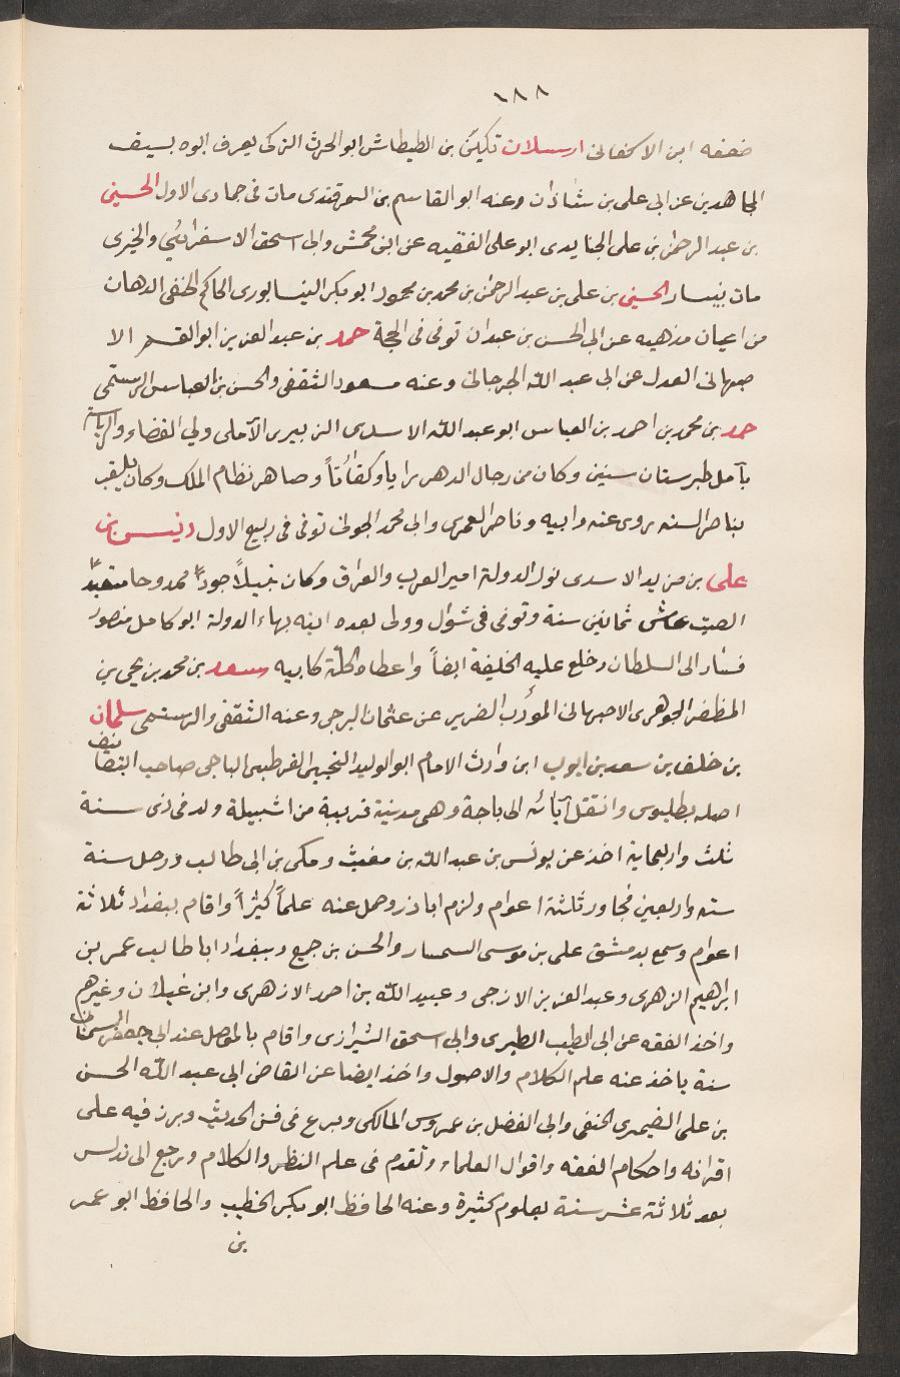 ١٨٨
ضعفه ابن الاكفانى ارسلان تكين بن الطيطاش ابو الحرث التركى يعرف ابوه بسيف
المجاهدين عن ابى على بن شاذان وعنه ابو القاسم بن السمرقندى مات فى جمادى الاول الحسين
بن عبد الرحمن بن على الجنابدى ابو على الفقيه عن ابن محمش وابى اسحق الاسفرائنى والحيرى
مات بنيسابور الحسين بن على بن عبد الرحمن بن محمد بن محمود ابو بكر النيسابورى الحاكم الحنفى الدهان
من اعيان مذهبه عن ابى الحسن بن عبدان توفى فى الحجة حمد بن عبد العزيز ابو القسم الا
صبهانى العدل عن ابى عبد الله الجرجانى وعنه مسعود الثقفى والحسن بن العباس الرستمى
حمد بن محمد بن احمد بن العباس ابو عبد الله الاسدى الزبيرى الآملى ولي القضاء والرياسة
بآمل طبرستان سنين وكان من رجال الدهر رايا وكفأتاً وصاهر نظام الملك وكان يلقب
بناصر السنه روى عنه وابيه وناصر العمرى وابى محمد الجوينى توفى فى ربيع الاول دبيس بن
على بن مزيد الاسدى نور الدولة امير العرب والعراق وكان نبيلاً جوداً ممدوحا بعيد
الصيت عاش ثمانين سنة وتوفى فى شوال وولى بعده ابنه بهاء الدولة ابو كامل منصور
فسار الى السلطان وخلع عليه الخليفة ايضاً واعطاه الحلّة كابيه سعد بن محمد بن يحيى بن
المظفر الجوهرى الاصبهانى المؤدب الضرير عن عثمان البرجى وعنه الثقفى والرستمى سلمان
بن خلف بن سعد بن ايوب ابن وارث الامام ابو الوليد التجيبى القرطبى الباجى صاحب التصانيف
اصله بطليوس وانتقل آبائه الى باجة وهى مدينة قريبة من اشبيلة ولد فى ذى سنة
ثلث واربعماية اخذ عن يونس بن عبد الله بن مغيث ومكى بن ابى طالب ورحل سنة
ستة واربعين فجاور ثلثة اعوام ولزم ابا ذر وحمل عنه علماً كثيراً واقام ببغداد ثلاثة
اعوام وسمع بدمشق على بن موسى السمسار والحسن بن جميع وببغداد ابا طالب عمر بن
ابراهيم الزهرى وعبد العزيز الازجى وعبيد الله بن احمد الازهرى وابن غيلان وغيرهم
واخذ الفقه عن ابى الطيب الطبرى وابى اسحق الشيرازى واقام بالموصل عند ابى جعفر السمنانى
سنة ياخذ عنه علم الكلام والاصول واخذ ايضا عن القاضى ابى عبد الله الحسن
بن على الضيمرى الحنفى وابى الفضل بن عمروس المالكى وبرع فى فن الحديث وبرز فيه على
اقرانه واحكام الفقه واقوال العلماء وتقدم فى علم النظر والكلام ورجع الى ندلس
بعد ثلاثة عشر سنة بعلوم كثيرة وعنه الحافظ ابو بكر الخطيب والحافظ ابو عمر
بن